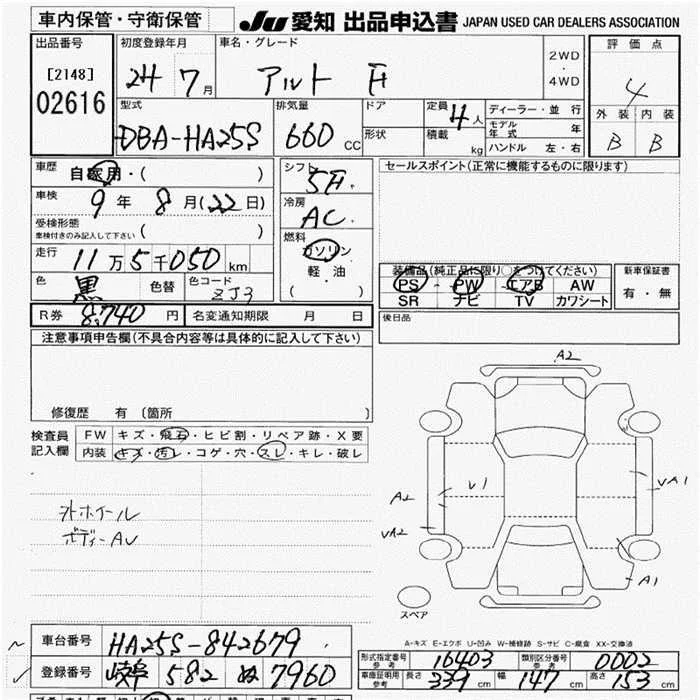 車内保管・守衛保管
JU 愛知 出品申込書 JAPAN USED CAR DEALERS ASSOCIATION
出品番号
[2148]
02616
初度登録年月
24 7月
車名・グレード
アルト F
2WD
・
4WD
評価点
4
外装 内装
B B
型式
DBA-HA25S
排気量
660 cc
ドア
形状
定員 4人
積載 kg
ディーラー・並行
モデル年式 年
ハンドル 左・右
車歴
自家用・( )
車検
9年 8月(22日)
受検形態
車検付きのみ記入して下さい ( )
走行
11万5千050km
色
黒
色替
色コード
ZJ3
シフト
5F
冷房
AC
燃料
ガソリン
軽・油
( )
セールスポイント(正常に機能するものに限ります)
装備品(純正品に限り○をつけてください)
PS - PW - エアB AW
SR ナビ TV カワシート
新車保証書
有・無
R券 8,740円
名変通知期限 月 日
後日品
注意事項申告欄(不具合内容等は具体的に記入して下さい)
修復歴 有 〔箇所 〕
検査員
記入欄
FW キズ・飛石・ヒビ割・リペア跡・X要
内装 キズ・汚レ・コゲ・穴・スレ・キレ・破レ
外ホイール
ボディーAU
A2
U1
A2
UA2
UA1
A1
スペア
A-キズ E-エクボ U-凹み W-補修跡 S-サビ C-腐食 XX-交換済
車台番号 HA25S-842679
登録番号 岐阜 582 ぬ 7960
形式指定番号 参考 16403
類別区分番号 参考 0002
車庫証明用 参考 長さ 339cm 幅 147cm 高さ 153cm